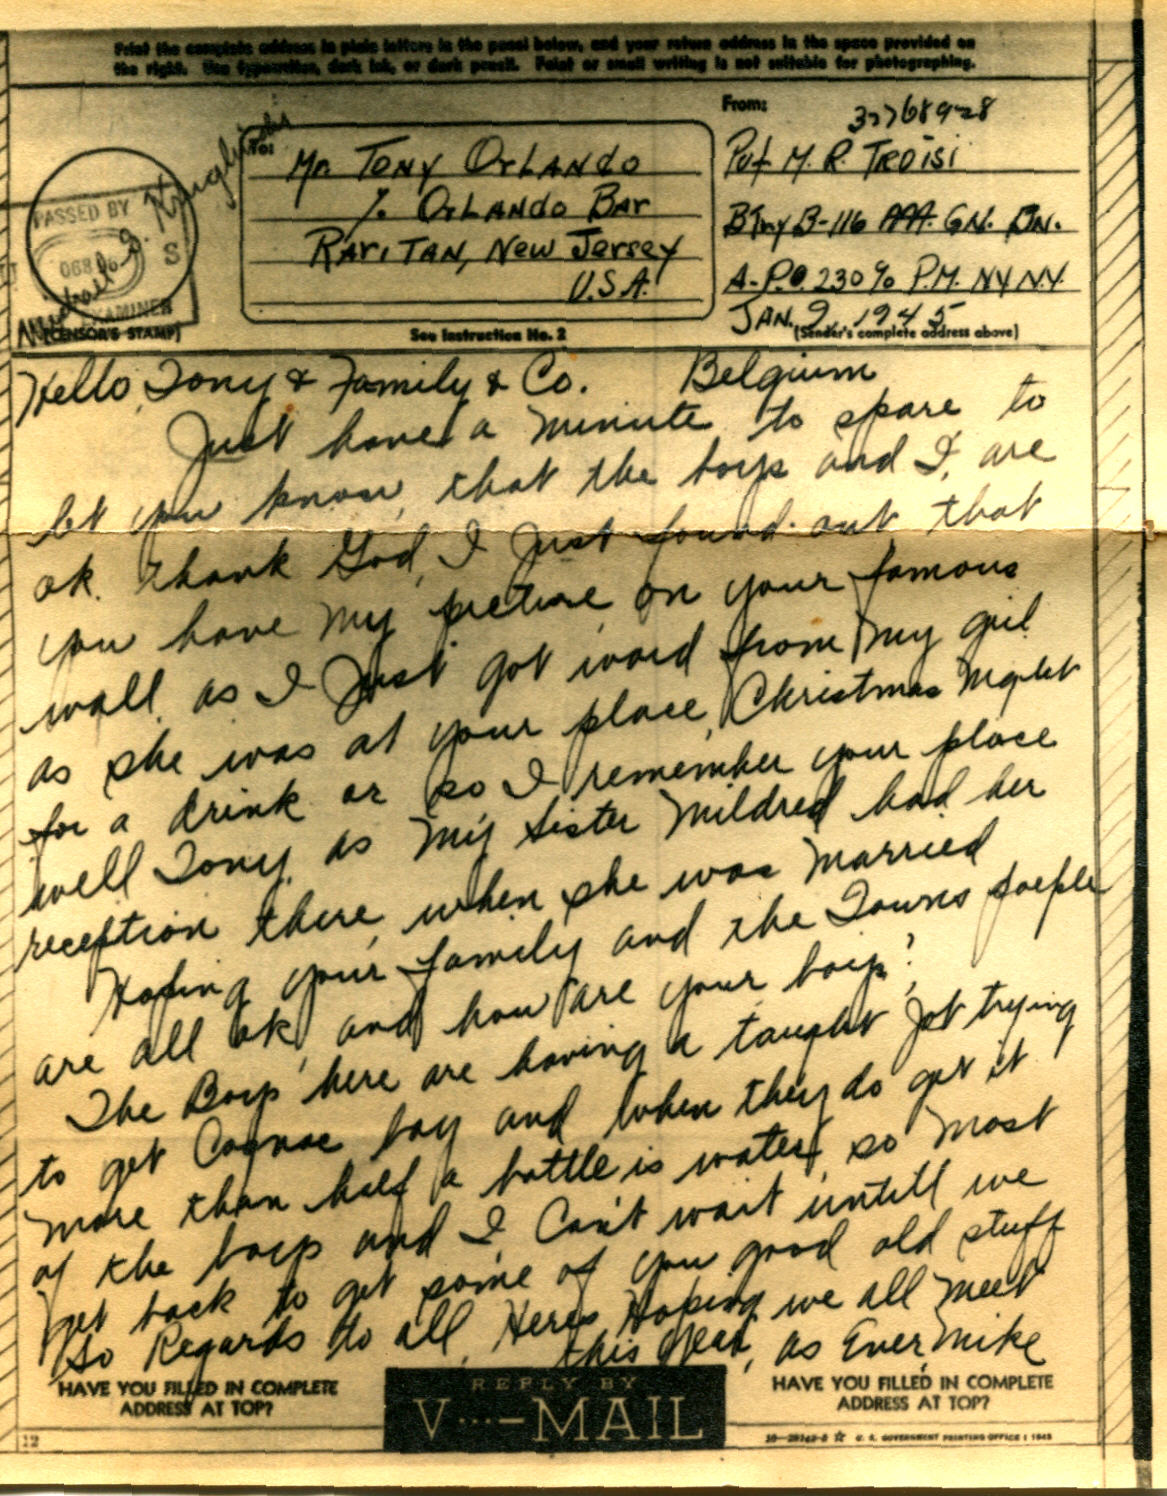 Print the complete address in plain letters in the panel below, and your return address in the space provided on
the right. Use typewriter, dark ink, or dark pencil. Faint or small writing is not suitable for photographing.
To:
Mr. Tony Orlando
% Orlando Bar
Raritan, New Jersey
U.S.A.
From:
32768928
Pvt M. R. Troisi
Btry B-116 AAA. GN. BN.
A.P.O. 230 % P.M. NY NY.
Jan. 9, 1945
(Sender's complete address above)
PASSED BY
S
EXAMINER
(CENSOR'S STAMP)
See Instruction No. 2
Hello, Tony & Family & Co. Belgium
Just have a minute to spare to
let you know, that the boys and I, are
ok. thank God, I Just found out that
you have my picture on your famous
wall. as I Just got word from my girl
as she was at your place, Christmas Night
for a drink or so I remember your place
well Tony. as my sister Mildred had her
reception there, when she was married
Hoping your family and the Towns poeple
are all ok, and how are your boys?
The Boys here are having a taught Job trying
to get Cognac boy and when they do get it
more than half a bottle is water, so most
of the boys and I, Can't wait untill we
get back to get some of you good old stuff
So Regards to all, Heres Hoping we all meet
this year, as Ever Mike
HAVE YOU FILLED IN COMPLETE
ADDRESS AT TOP?
REPLY BY
V···—MAIL
HAVE YOU FILLED IN COMPLETE
ADDRESS AT TOP?
12
U. S. GOVERNMENT PRINTING OFFICE : 1943